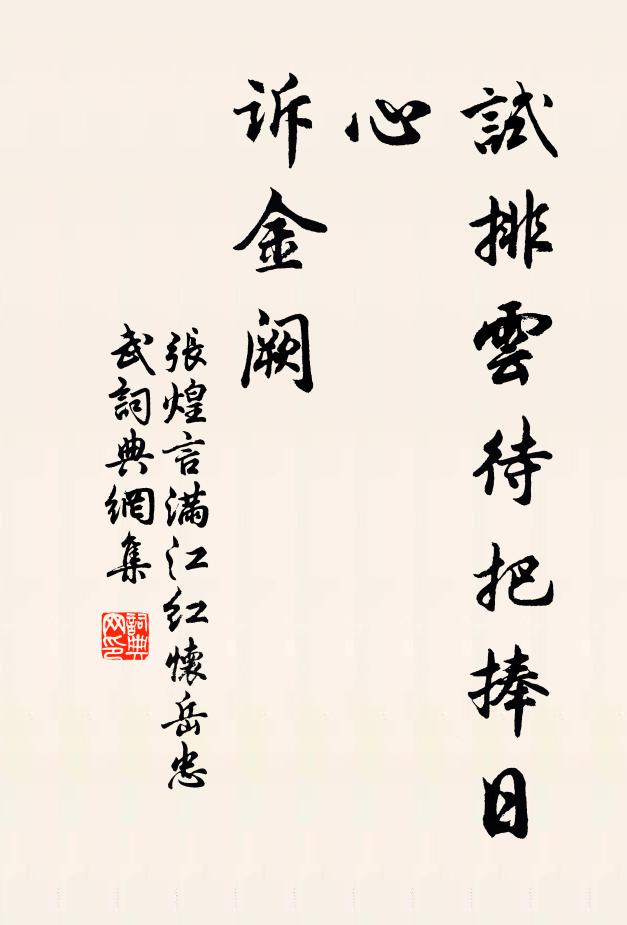 試排雲待把捧日
心
訴金闕
張煌言满江红懷岳忠
武詞典網集
詞典
网印